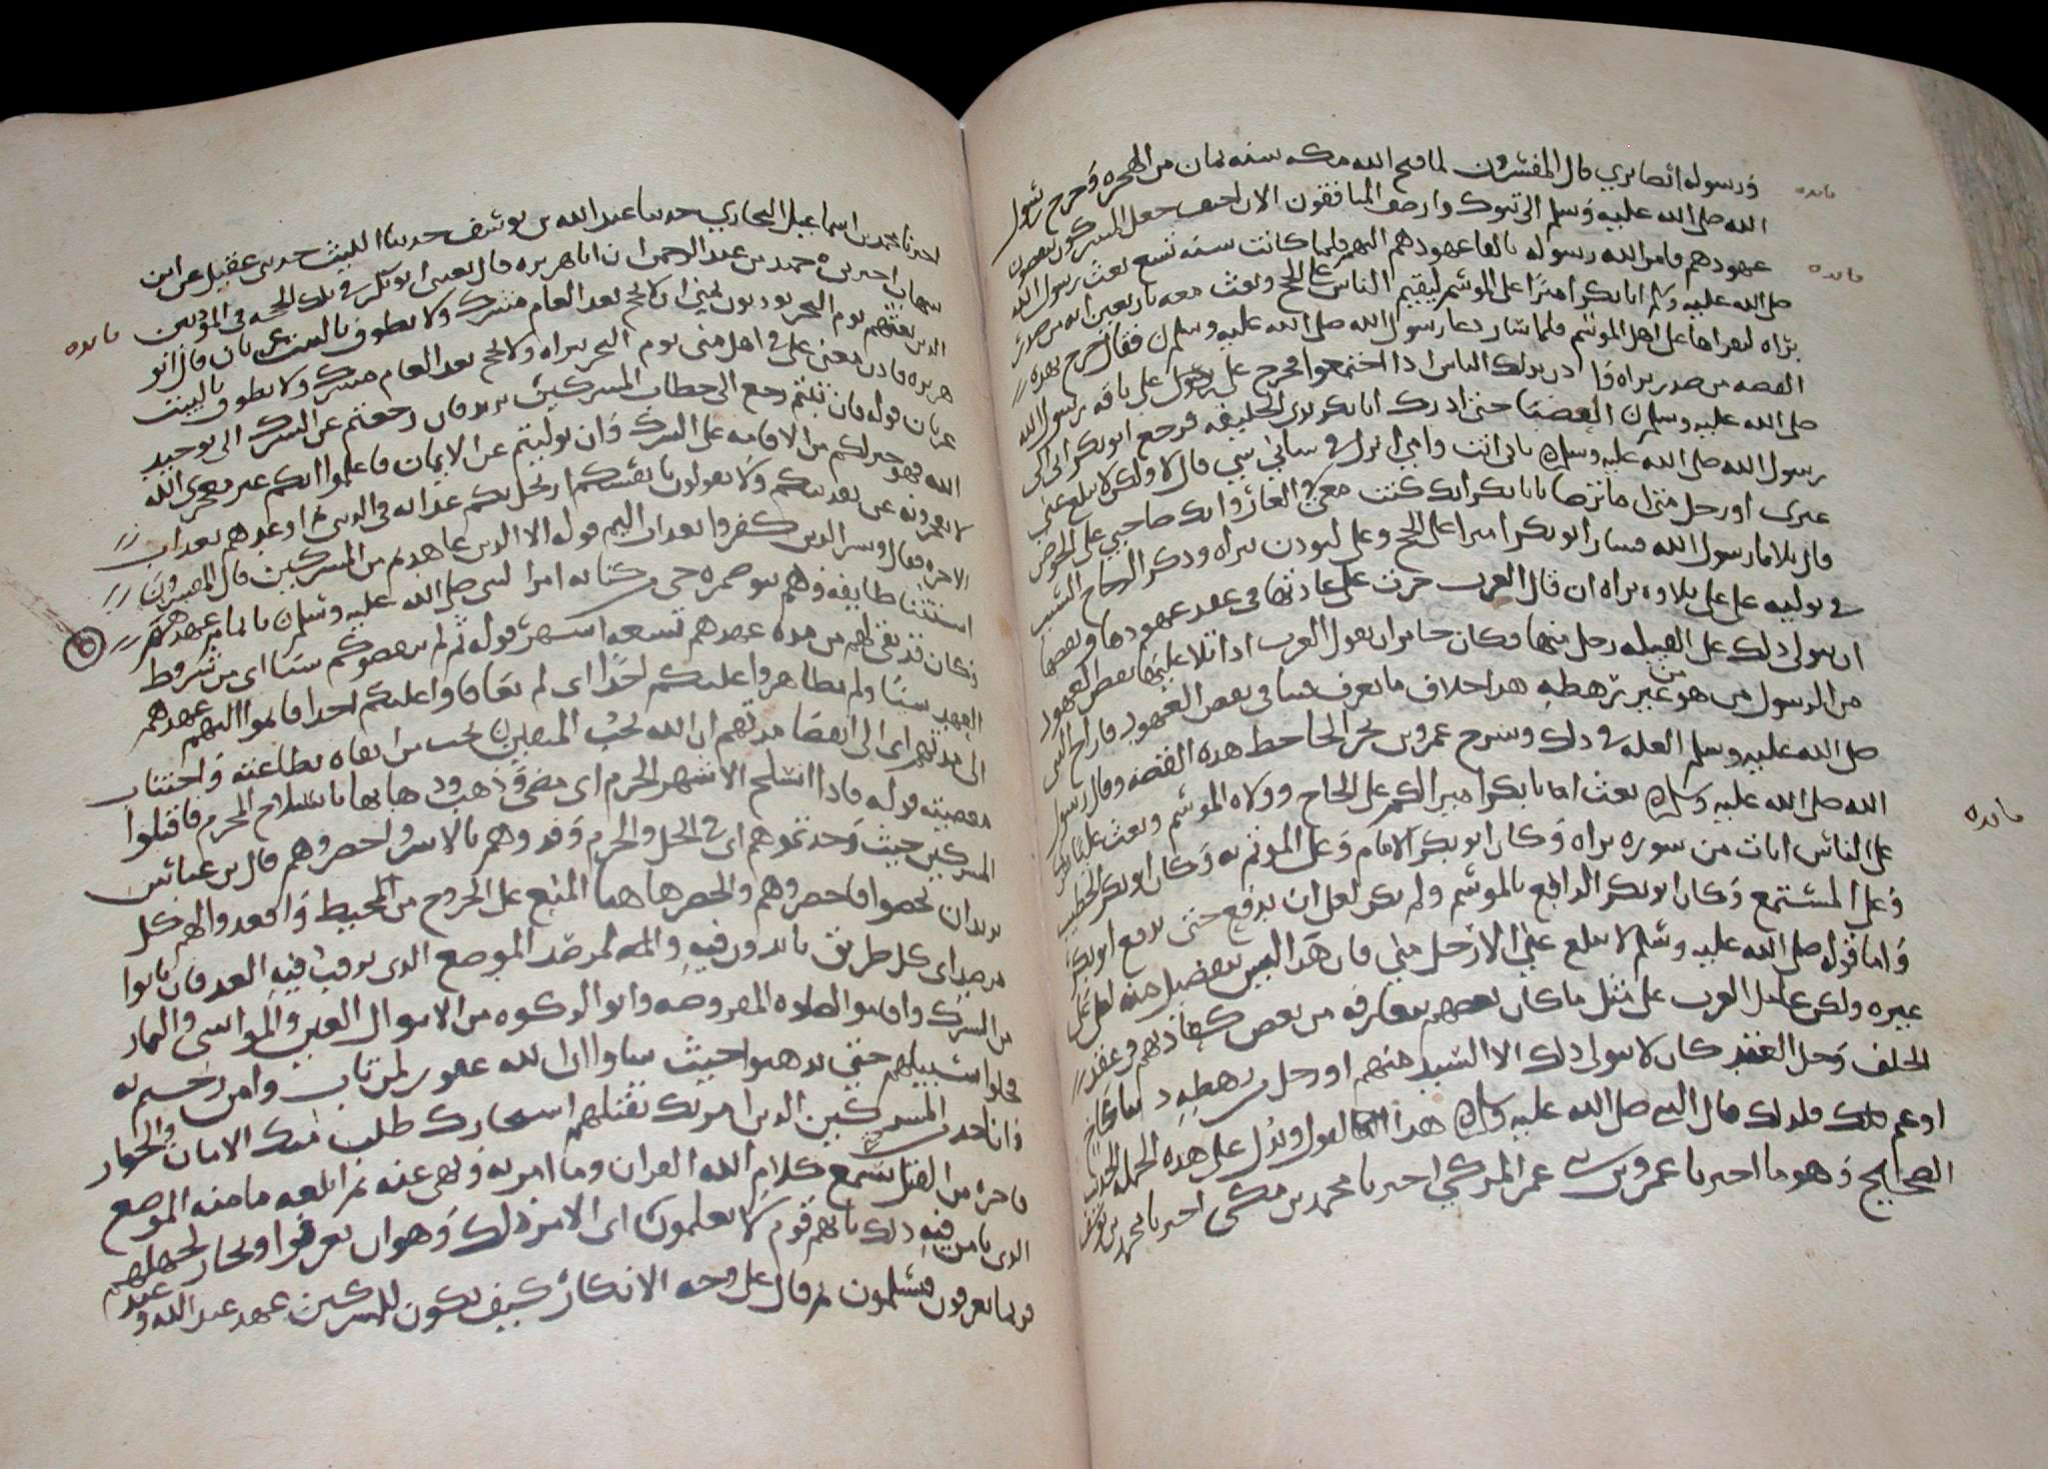 ورسوله ايضا بري قال المفسرون لما فتح الله مكه سنه ثمان من الهجره وخرج رسول
الله صلى الله عليه وسلم الى تبوك وارجف المنافقون الاراجيف جعل المشركون ينقضون
عهودهم فامر الله رسوله بالقا عهودهم اليهم فلما كانت سنه تسع بعث رسول الله
صلى الله عليه وسلم ابا بكر اميرا على الموسم ليقيم الناس على الحج وبعث معه باربعين ايه من صدر
براه ليقراها على اهل الموسم فلما سار دعا رسول الله صلى الله عليه وسلم فقال اخرج بهذه
القصه من صدر براه واذن بذلك الناس اذا اجتمعوا فخرج علي على ناقه رسول الله
صلى الله عليه وسلم العضبا حتى ادرك ابا بكر بذي الحليفه فرجع ابو بكر الى
رسول الله صلى الله عليه وسلم بابي انت وامي انزل في شاني شي قال لا ولكن لا يبلغ عني
غيري او رجل مني اما ترضا يا ابا بكر انك كنت معي في الغار وانك صاحبي على الحوض
قال بلا يا رسول الله فسار ابو بكر اميرا على الحج وعلي ليوذن ببراه وذكر الزجاج السبب
في توليه علي على تلاوه براه ان قال العرب جرت على عادتها في عقد عهودها ونقضها
ان يتولى ذلك على القبيله رجل منها فكان جايز ان يقول العرب اذا تلا عليها نقض العهود
من الرسول من هو من غير رهطه هذا خلاف ما نعرف فينا في نقض العهود فازاح النبي
صلى الله عليه وسلم العله في ذلك وشرح عمرو بن بحر الجاحظ هذه القصه وقال رسول
الله صلى الله عليه وسلم بعث ابا بكر اميرا على الحاج وولاه الموسم وبعث عليا يقرا
على الناس ايات من سوره براه وكان ابو بكر الامام وعلي الموتم به وكان ابو بكر الخطيب
وعلي المستمع وكان ابو بكر الدافع بالموسم ولم يكن لعلي ان يدفع حتى يدفع ابو بكر
واما قوله صلى الله عليه وسلم لا يبلغ عني الا رجل مني فان هذا ليس بتفضيل منه لعلي على
غيره ولكن عامل العرب على مثل ما كان بعضهم يتعارفه من بعض كعادتهم في عقد
الحلف وحل العقد كان لا يتولى ذلك الا السيد منهم او رجل من رهطه
او عم فلذلك قال النبي صلى الله عليه وسلم هذا القول ويدل على هذه الجمله الحديث
الصحيح وهو ما اخبرنا عمرو بن عمر المزكي اخبرنا محمد بن مكي اخبرنا محمد بن يوسف
فايده
فايده
فايده
اخبرنا محمد بن اسماعيل البخاري حدثنا عبد الله بن يوسف حدثنا الليث حدثني عقيل عن ابن
شهاب اخبرني حميد بن عبد الرحمن ان ابا هريره قال بعثني ابو بكر في تلك الحجه في الموذنين
الذين بعثهم يوم النحر يوذنون بمنى ان لا يحج بعد العام مشرك ولا يطوف بالبيت عريان قال ابو
هريره فاذن معنى علي في اهل منى يوم النحر ببراه ولا يحج بعد العام مشرك ولا يطوف بالبيت
عريان قوله فان تبتم رجع الى خطاب المشركين يريد فان رجعتم عن الشرك الى توحيد
الله فهو خير لكم من الاقامه على الشرك وان توليتم عن الايمان فاعلموا انكم غير معجزي الله
الاخره فقال وبشر الذين كفروا بعذاب اليم قوله الا الذين عاهدتم من المشركين قال المفسرون
استثنا طايفه وهم بنو ضمره حي من كنانه امر النبي صلى الله عليه وسلم باتمام عهدهم
وكان قد بقي لهم من مده عهدهم تسعه اشهر قوله ثم لم ينقصوكم شيا اي من شروط
العهد شيا ولم يظاهروا عليكم احدا اي لم يعاونوا عليكم احدا فاتموا اليهم عهدهم
الى مدتهم اي الى انقضا مدتهم ان الله يحب المتقين يحب من اتقاه بطاعته واجتناب
معصيته قوله فاذا انسلخ الاشهر الحرم اي مضى وذهب وذهابها بانسلاخ المحرم فاقتلوا
المشركين حيث وجدتموهم اي في الحل والحرم وخذوهم بالاسر واحصروهم قال ابن عباس
يريد ان تحصنوا فاحصروهم والحصر هاهنا المنع عن الخروج من المحيط واقعدوا لهم كل
مرصد اي كل طريق ياخذون فيه والمرصد الموضع الذي يرقب فيه العدو فان تابوا
من الشرك واقاموا الصلوه المفروضه واتوا الزكوه من الاموال العين والمواشي والثمار
فخلوا سبيلهم حتى يذهبوا حيث شاوا ان الله غفور لمن تاب وامن رحيم به
وان احد من المشركين الذين امرتك بقتلهم استجارك طلب منك الامان والجوار
فاجره من القتل حتى يسمع كلام الله القران وما امر به ونهى عنه ثم ابلغه مامنه الموضع
الذي يامن فيه ذلك بانهم قوم لا يعلمون اي الامر ذلك وهو ان يعرفوا ويجاروا لجهلهم
فربما يعرفون فيسلمون ثم قال على وجه الانكار كيف يكون للمشركين عهد عند الله وعند
فايده